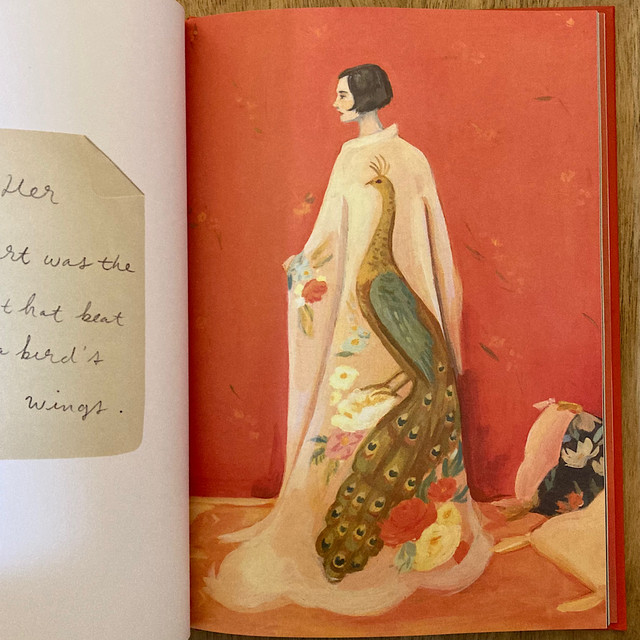 Her
rt was the
that beat
bird's
wings.